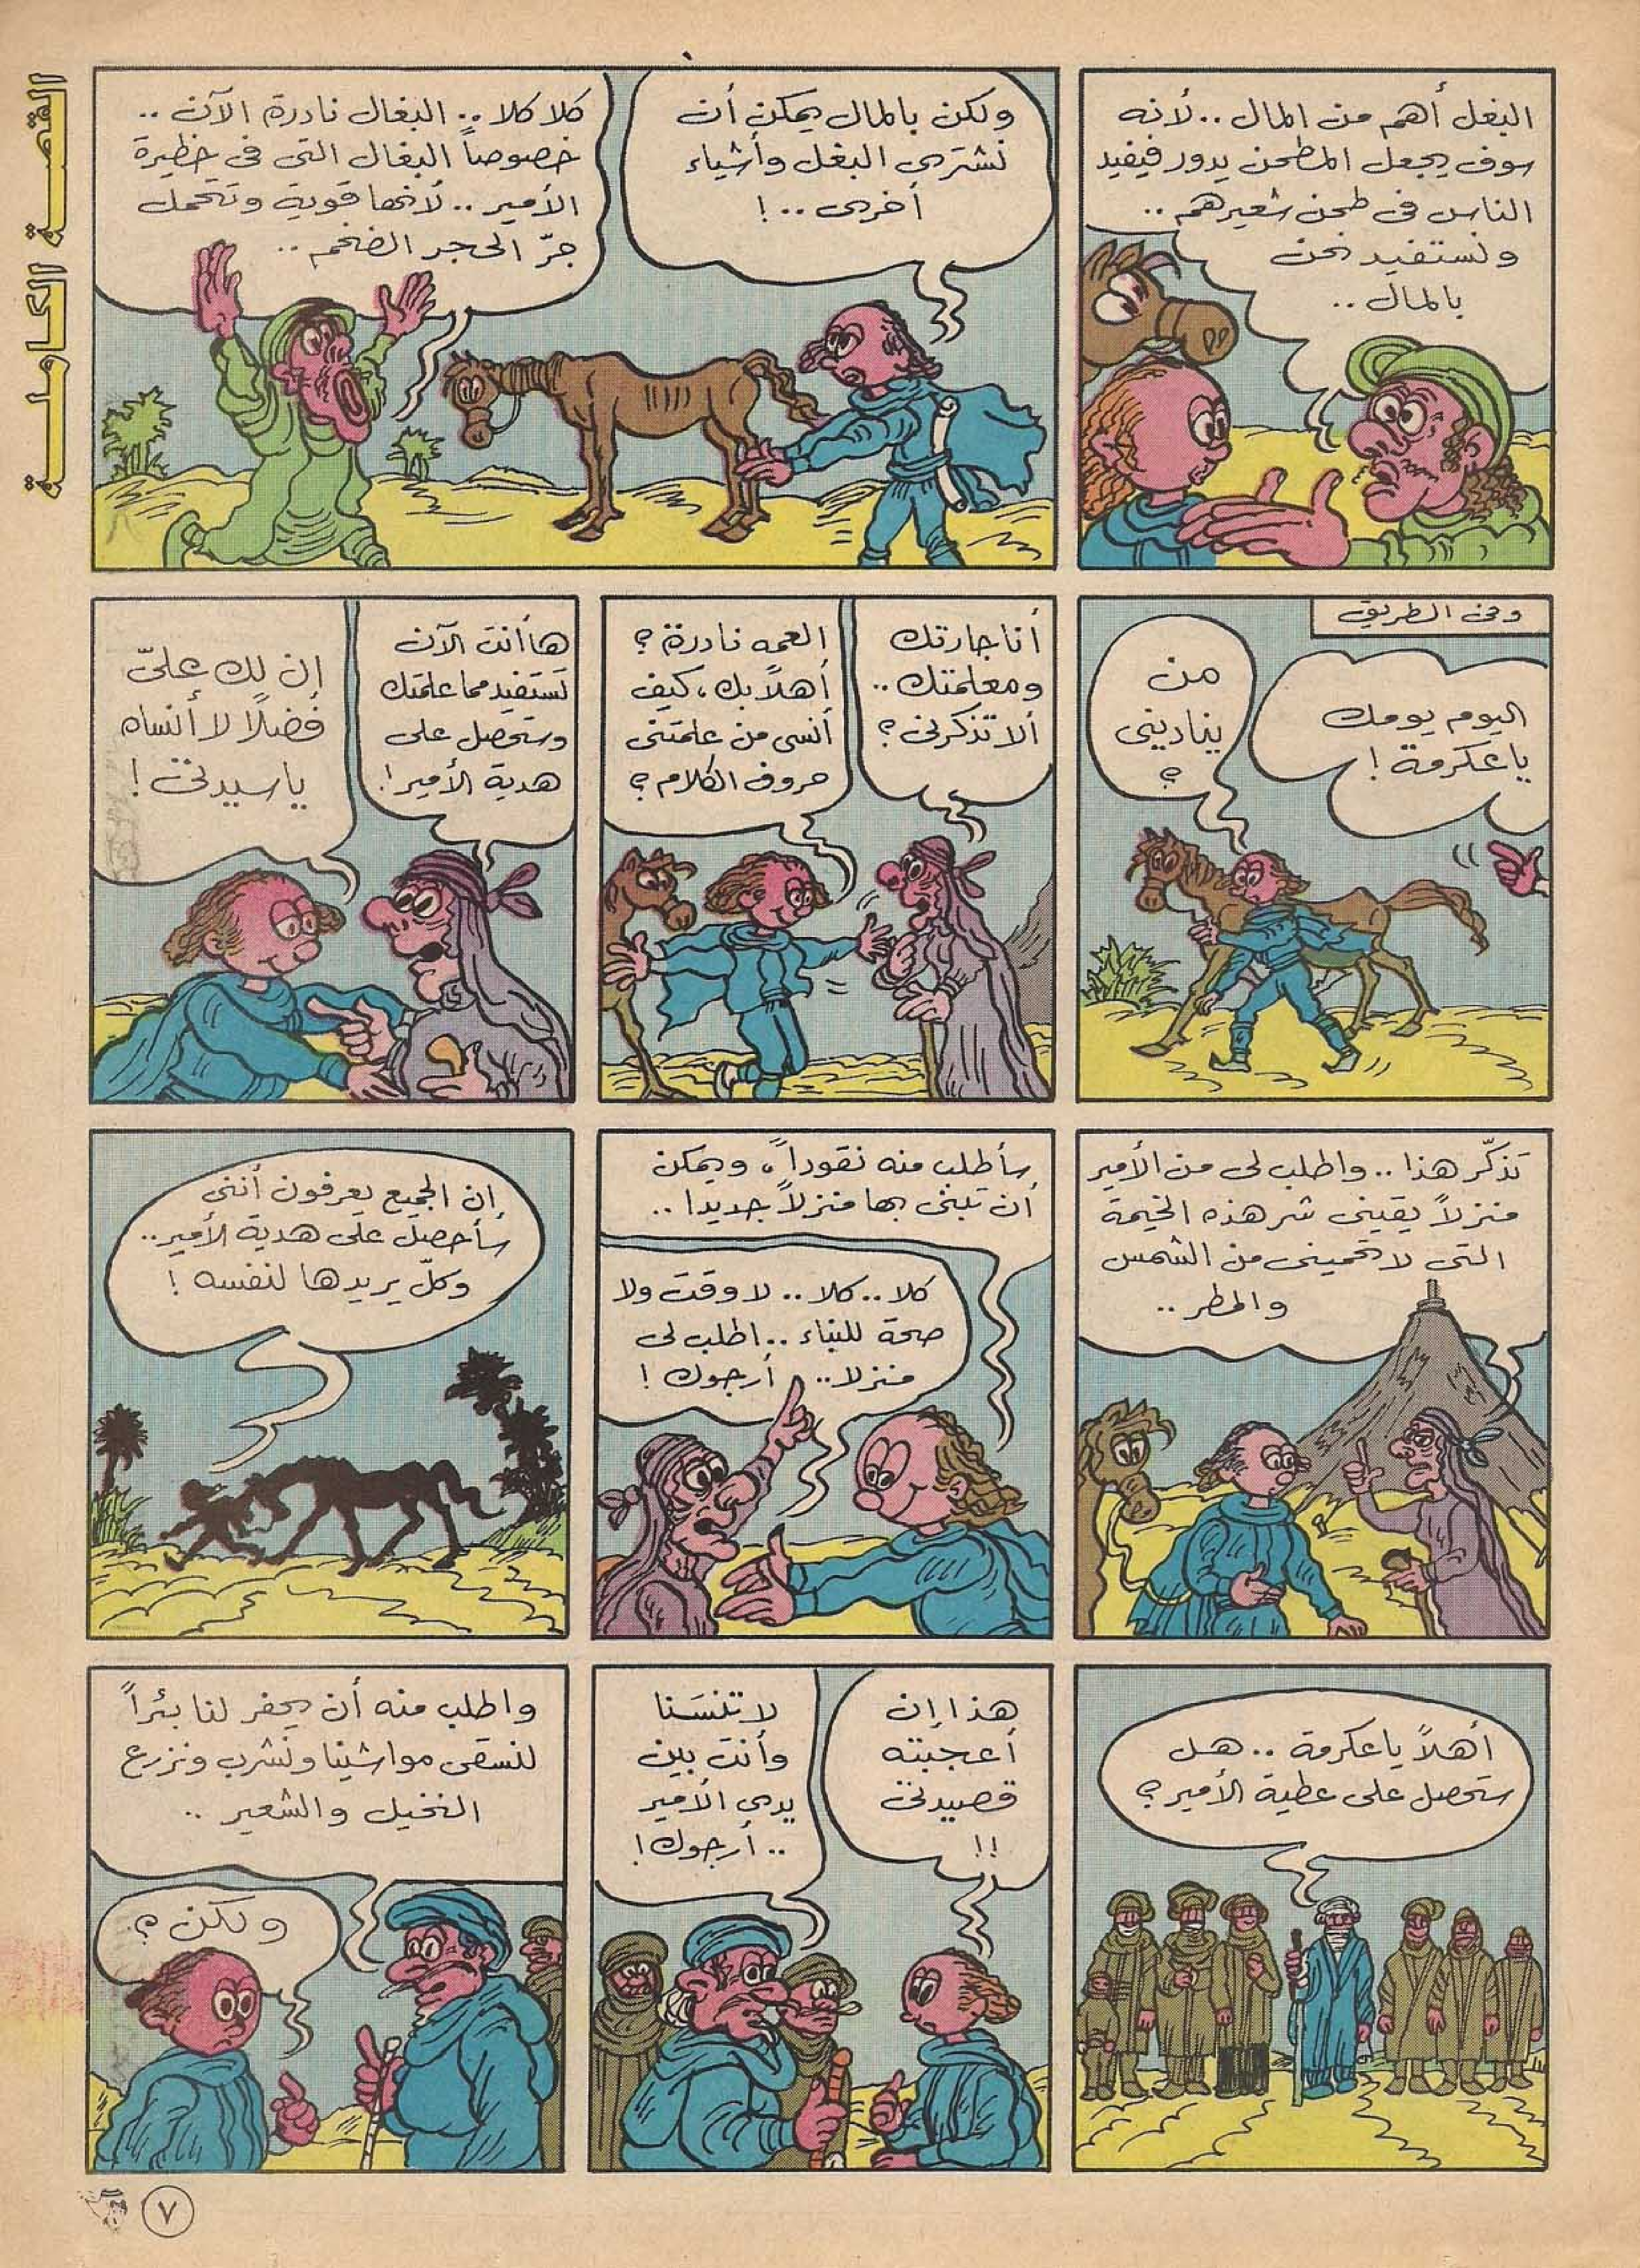 القصة الكاملة
البغل أهم من المال .. لأنه
سوف يجعل المطحن يدور فيفيد
الناس في طحن شعيرهم ..
ونستفيد نحن
بالمال ..
ولكن بالمال يمكن أن
نشترى البغل وأشياء
أخرى .. !
كلا كلا .. البغال نادرة الآن ..
خصوصاً البغال التى في حظيرة
الأمير .. لأنها قوية وتتحمل
جرّ الحجر الضخم ..
وفى الطريق
اليوم يومك
يا عكرمة !
من
ينادينى
؟
أنا جارتك
ومعلمتك ..
ألا تذكرنى ؟
العمه نادرة ؟
أهلاً بك ، كيف
أنسى من علمتنى
حروف الكلام ؟
ها أنت الآن
تستفيد مما علمتك
وستحصل على
هدية الأمير !
إن لك علىّ
فضلاً لا أنساه
يا سيدتى !
تذكّر هذا .. واطلب لى من الأمير
منزلاً يقينى شر هذه الخيمة
التى لا تحمينى من الشمس
والمطر ..
سأطلب منه نقوداً ، ويمكن
أن تبنى بها منزلاً جديدا ..
كلا .. كلا .. لا وقت ولا
صحة للبناء .. اطلب لى
منزلا .. أرجوك !
إن الجميع يعرفون أننى
سأحصل على هدية الأمير ..
وكلّ يريدها لنفسه !
أهلاً يا عكرمة .. هل
ستحصل على عطية الأمير ؟
هذا إن
أعجبته
قصيدتى
!!
لا تنسَنا
وأنت بين
يدى الأمير
.. أرجوك !
واطلب منه أن يحفر لنا بئراً
لنسقى مواشينا ونشرب ونزرع
النخيل والشعير ..
ولكن ؟
٧